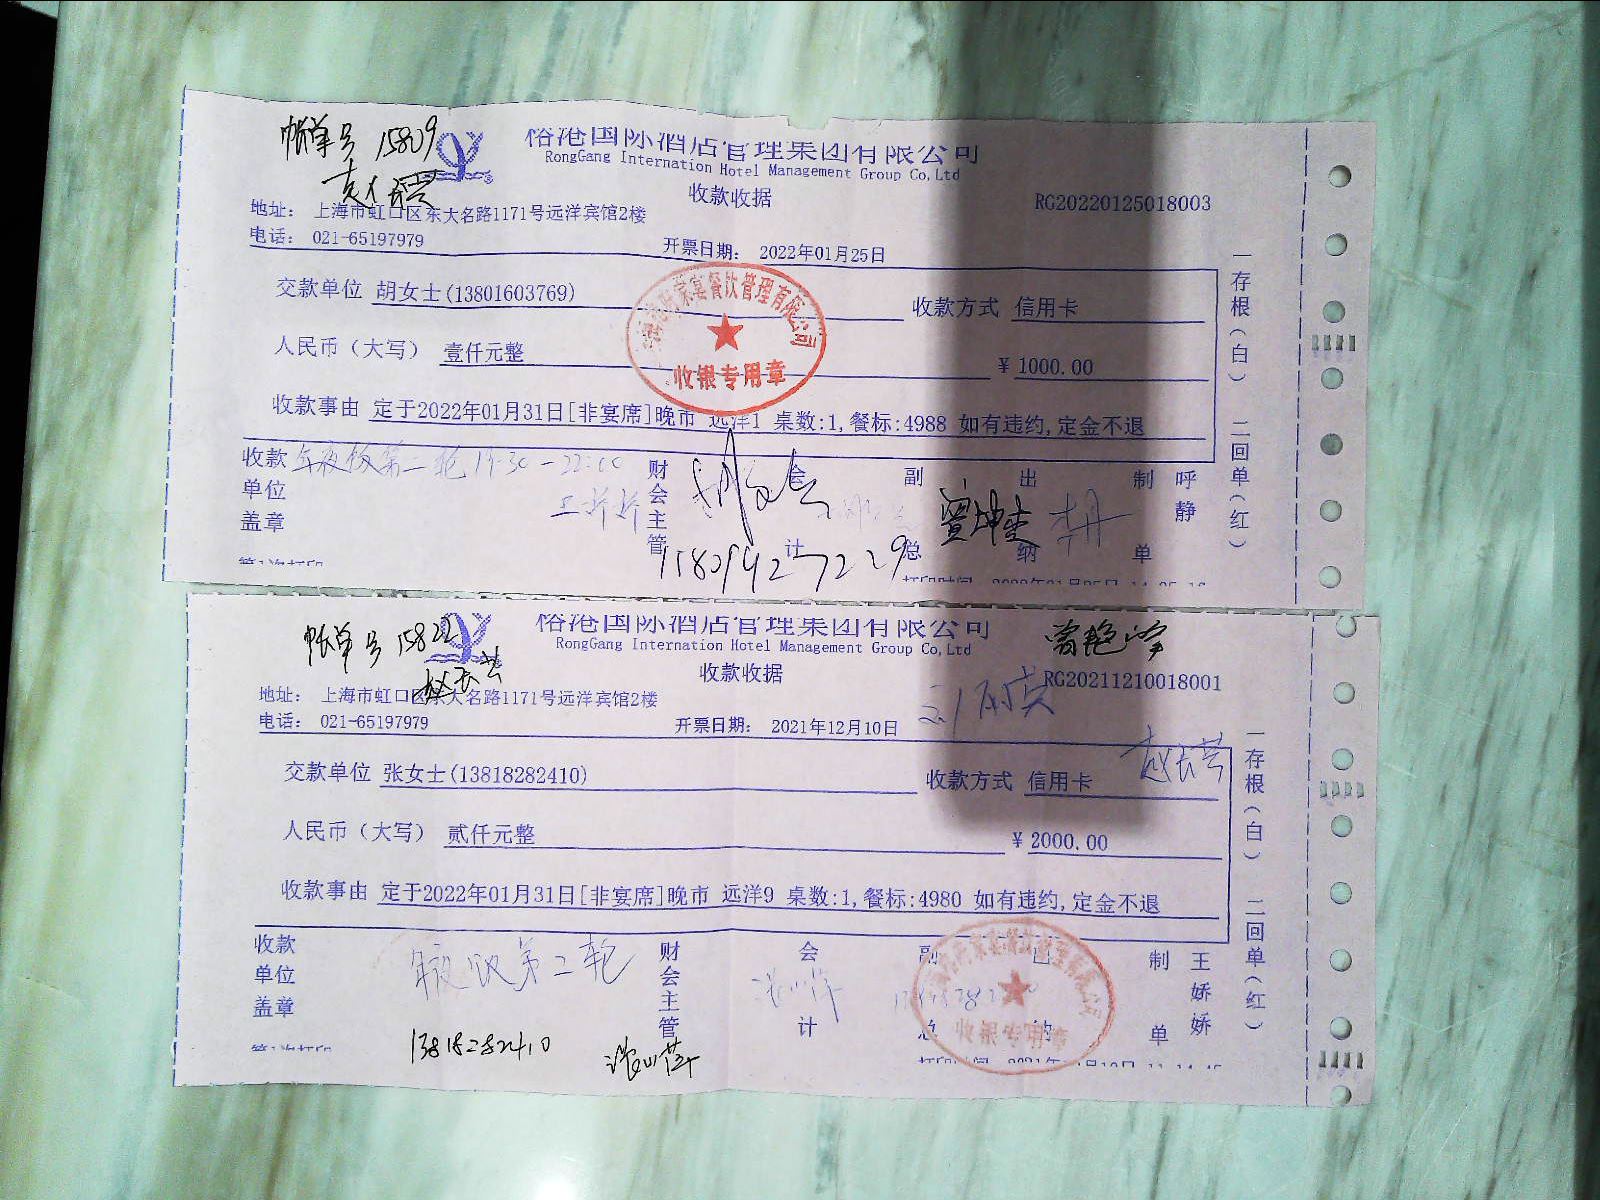 帐单号 15809
榕港国际酒店管理集团有限公司
RongGang Internation Hotel Management Group Co,Ltd
收款收据
RG20220125018003
地址： 上海市虹口区东大名路1171号远洋宾馆2楼
电话： 021-65197979
开票日期： 2022年01月25日
交款单位 胡女士(13801603769)
收款方式 信用卡
人民币（大写） 壹仟元整
￥ 1000.00
收款事由 定于2022年01月31日[非宴席]晚市 远洋1 桌数:1,餐标:4988 如有违约,定金不退
餐饮管理有限公司
收银专用章
收款单位盖章
年夜饭第二轮 19:30-22:00
财会主管
会计
副总
出纳
制单
呼静
贾坤杰
15809427229
第1次打印
打印时间
一存根(白) 二回单(红)
帐单号 15822
榕港国际酒店管理集团有限公司
RongGang Internation Hotel Management Group Co,Ltd
收款收据
RG20211210018001
地址： 上海市虹口区东大名路1171号远洋宾馆2楼
电话： 021-65197979
开票日期： 2021年12月10日
交款单位 张女士(13818282410)
收款方式 信用卡
人民币（大写） 贰仟元整
￥ 2000.00
收款事由 定于2022年01月31日[非宴席]晚市 远洋9 桌数:1,餐标:4980 如有违约,定金不退
收款单位盖章
年夜饭第二轮
财会主管
会计
副总
出纳
制单
王娇娇
收银专用章
13818282410
第1次打印
打印时间
一存根(白) 二回单(红)